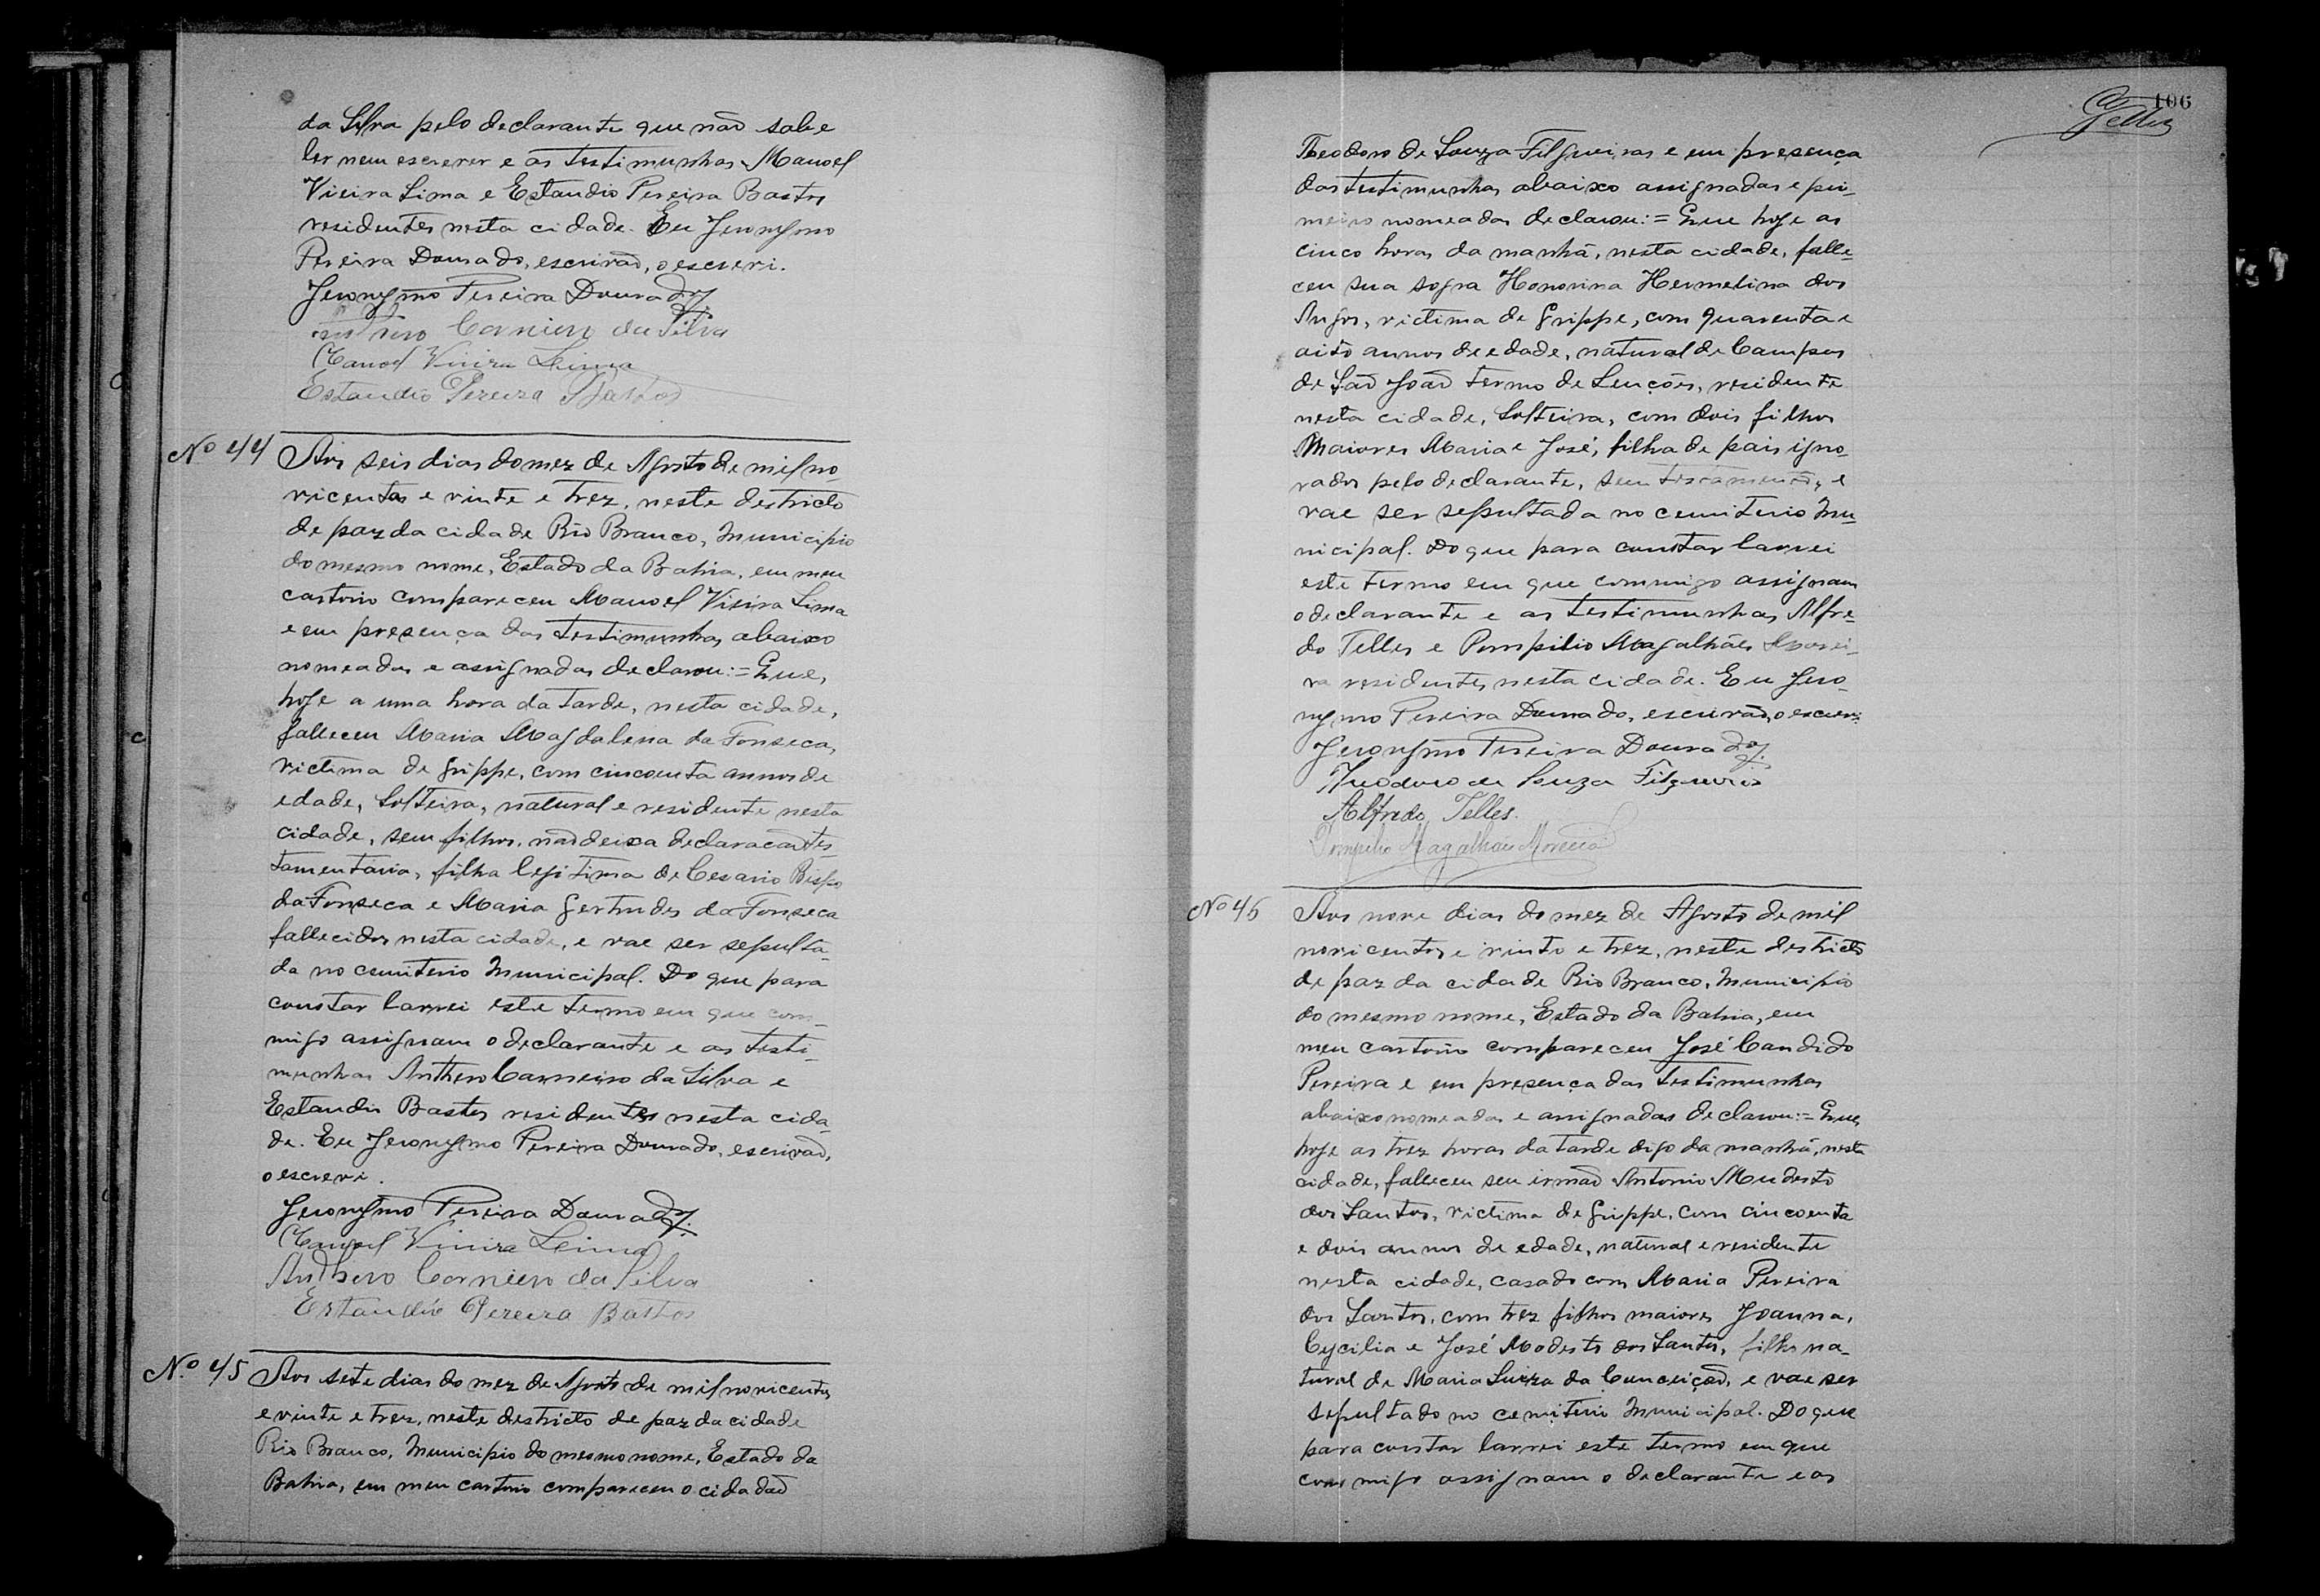 da Silva pelo declarante que não sabe
ler nem escrever e as testimunhas Manoel
Vieira Lima e Estandio Pereira Bastos
residentes nesta cidade. Eu Jeronymo
Pereira Dourado, escrivão, o escrevi.
Jeronymo Pereira Dourado
Carneiro da Silva
Manoel Vieira Lima
Estandio Pereira Bastos
Nº 44 Aos seis dias do mez de Agosto de mil no-
vicentos e vinte e trez, neste destricto
de paz da cidade Rio Branco, Municipio
do mesmo nome, Estado da Bahia, em meu
cartorio compareceu Manoel Vieira Lima
e em presença das testimunhas abaixo
nomeadas e assignadas declarou:= Que,
hoje a uma hora da tarde, nesta cidade,
falleceu Maria Magdalena da Fonseca,
victima de grippe, com cincoenta annos de
edade, Solteira, natural e residente nesta
cidade, sem filhos, não deixa declaracão tes-
tamentaria, filha legitima de Cesario Bispo
da Fonseca e Maria Gertrudes da Fonseca
fallecidos nesta cidade, e vae ser sepulta-
da no cemiterio Municipal. Do que para
constar lavrei este termo em que com-
migo assignam o declarante e as testi-
munhas Anthero Carneiro da Silva e
Estandio Bastos residentes nesta cida-
de. Eu Jeronymo Pereira Dourado, escrivão,
o escrevi.
Jeronymo Pereira Dourado
Manoel Vieira Lima
Anthero Carneiro da Silva
Estandio Pereira Bastos
Nº 45 Aos sete dias do mez de Agosto de mil novicentos
e vinte e trez, neste destricto de paz da cidade
Rio Branco, Municipio do mesmo nome, Estado da
Bahia, em meu cartorio compareceu o cidadão
106
Telles
Theodoro de Souza Filgueiras e em presença
das testimunhas abaixo assignadas e pri-
meiro nomeadas declarou:= Que hoje as
cinco horas da manhã, nesta cidade, falle-
ceu sua sogra Honorina Hermelina dos
Anjos, victima de Grippe, com quarenta e
oito annos de edade, natural de Campos
de São João termo de Lenções, residente
nesta cidade, Solteira, com dois filhos
Maiores Maria e José, filha de pais igno-
rados pelo declarante, sem testamento, e
vae ser sepultada no cemiterio Mu-
nicipal. Do que para constar lavrei
este termo em que commigo assignam
o declarante e as testimunhas Alfre-
do Telles e Pompilio Magalhães Morei-
ra residentes nesta cidade. Eu Jero-
nymo Pereira Dourado, escrivão, o escrevi
Jeronymo Pereira Dourado
Theodoro de Souza Filgueiras
Alfredo Telles.
Pompilio Magalhães Moreira
Nº 46 Aos nove dias do mez de Agosto de mil
novicentos e vinte e trez, neste destricto
de paz da cidade Rio Branco, Municipio
do mesmo nome, Estado da Bahia, em
meu cartorio compareceu José Candido
Pereira e em presença das testimunhas
abaixo nomeadas e assignadas declarou:= Que,
hoje as trez horas da tarde digo da manhã, nesta
cidade, falleceu seu irmão Antonio Mudesto
dos Santos, victima de Grippe, com cincoenta
e dois annos de edade, natural e residente
nesta cidade, casado com Maria Pereira
dos Santos, com trez filhos maiores Joanna,
Cycilia e José Modesto dos Santos, filho na-
tural de Maria Luiza da Conceição, e vae ser
sepultado no cemiterio Municipal. Do que
para constar lavrei este termo em que
commigo assignam o declarante e as